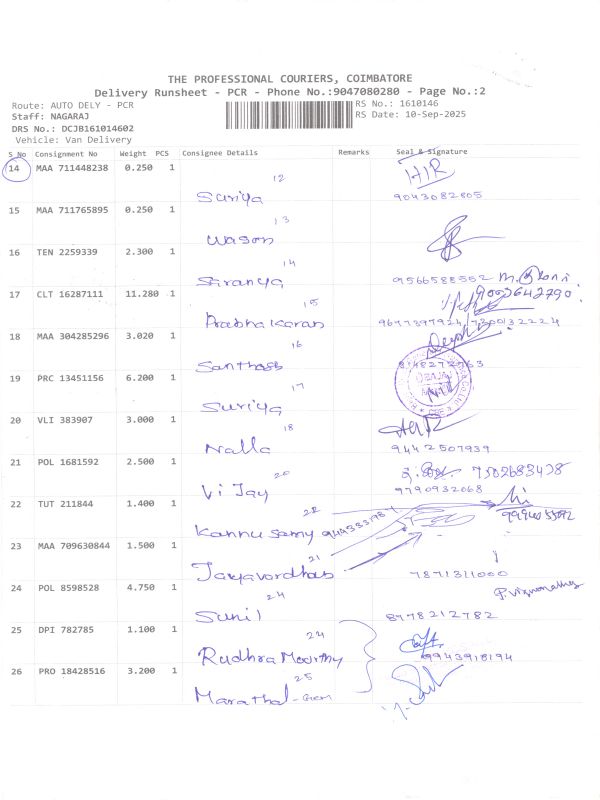 THE PROFESSIONAL COURIERS, COIMBATORE
Delivery Runsheet - PCR - Phone No.:9047080280 - Page No.:2
Route: AUTO DELY - PCR
RS No.: 1610146
Staff: NAGARAJ
RS Date: 10-Sep-2025
DRS No.: DCJB161014602
Vehicle: Van Delivery
S No Consignment No Weight PCS Consignee Details Remarks Seal & Signature
14 MAA 711448238 0.250 1 12 HIR
Suriya 9043082805
15 MAA 711765895 0.250 1 13
Wason
16 TEN 2259339 2.300 1 14
Siranya 9566588552
17 CLT 16287111 11.280 1 15 9003642790
Prabhakaran 9677397924, 7300132224
18 MAA 304285296 3.020 1 16
Santhosh
19 PRC 13451156 6.200 1 17
Suriya
20 VLI 383907 3.000 1 18
Nalla 9442507939
21 POL 1681592 2.500 1 20 7502683438
Vijay 9790932068
22 TUT 211844 1.400 1 22
Kannusamy
23 MAA 709630844 1.500 1 21
Jayavordhan 7871311000
24 POL 8598528 4.750 1 24
Sunil 8778212782
25 DPI 782785 1.100 1 24
Rudhra Moorthy 9943918194
26 PRO 18428516 3.200 1 25
Marathal